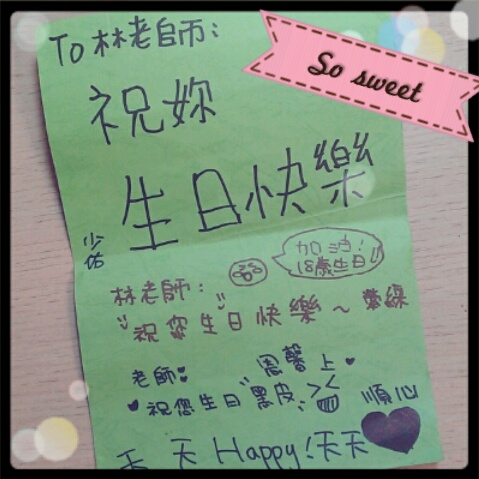 TO 林老師:
So sweet
祝妳
生日快樂
少佑
加油!
18歲生日
林老師:
祝您生日快樂~
周馨上
老師:
祝您生日 黑皮 順心
天天Happy!天天